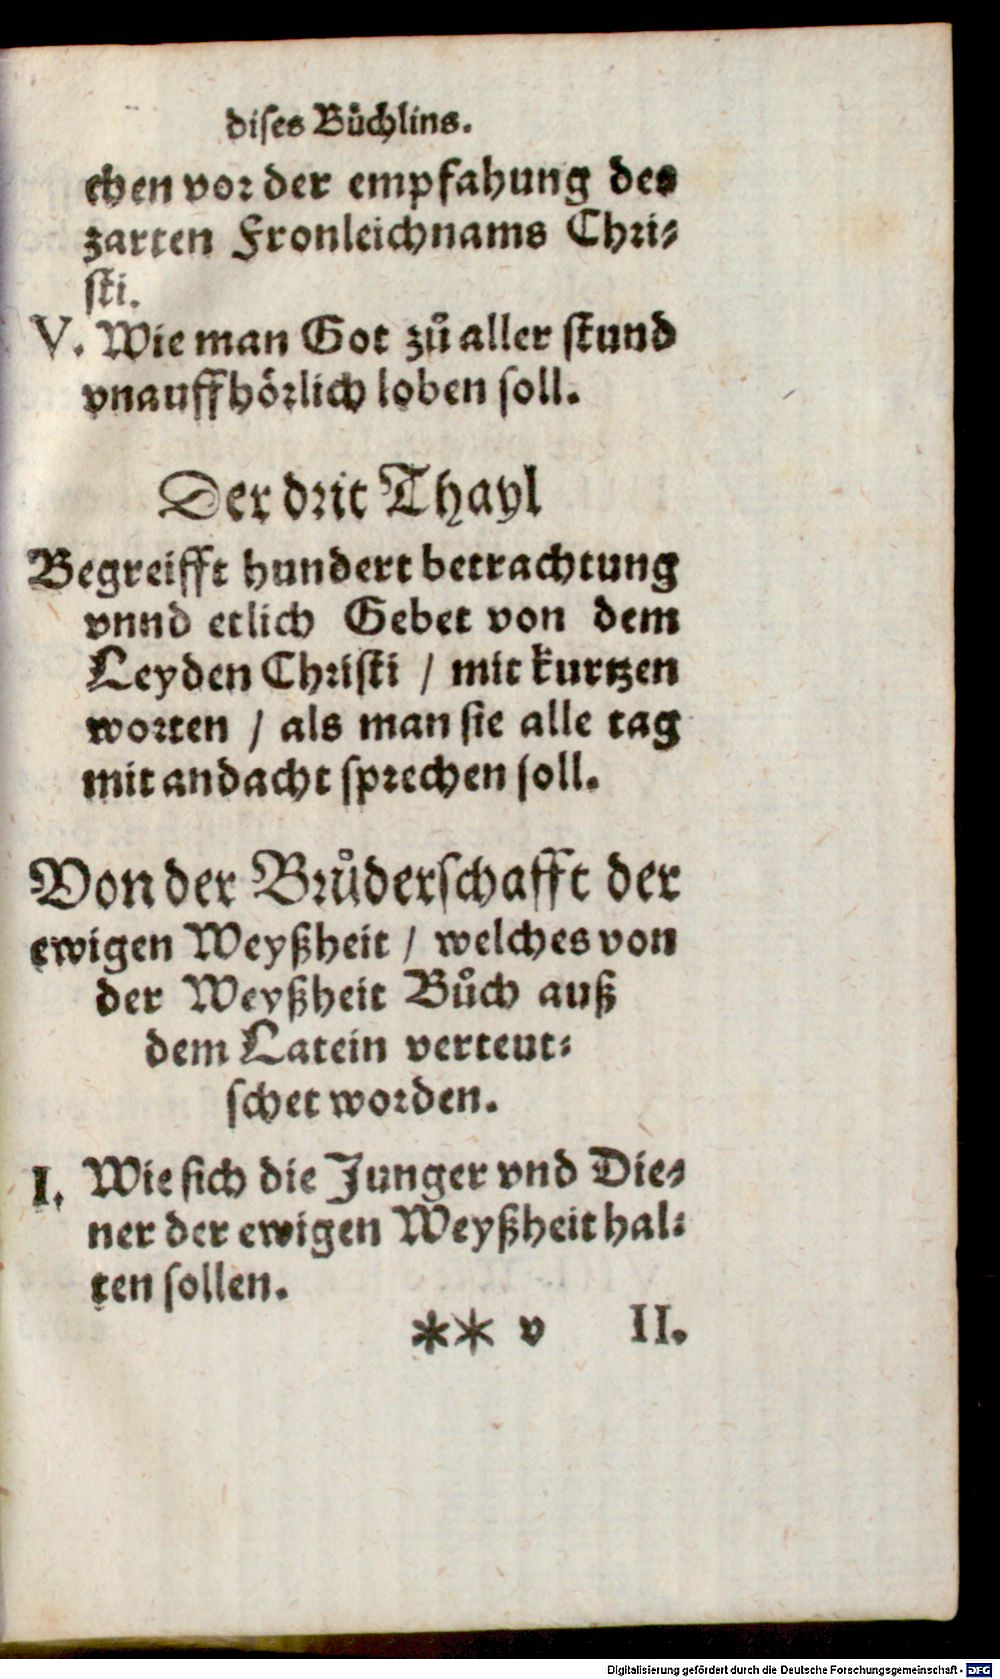 dises Bůchlins.
chen vor der empfahung des
zarten Fronleichnams Chri⸗
sti.
V. Wie man Got zů aller stund
vnauffhörlich loben soll.
Der drit Thayl
Begreifft hundert betrachtung
vnnd etlich Gebet von dem
Leyden Christi / mit kurtzen
worten / als man sie alle tag
mit andacht sprechen soll.
Von der Brůderschafft der
ewigen Weyßheit / welches von
der Weyßheit Bůch auß
dem Latein verteut⸗
schet worden.
I. Wie sich die Junger vnd Die⸗
ner der ewigen Weyßheit hal⸗
ten sollen.
** v II.
Digitalisierung gefördert durch die Deutsche Forschungsgemeinschaft - DFG